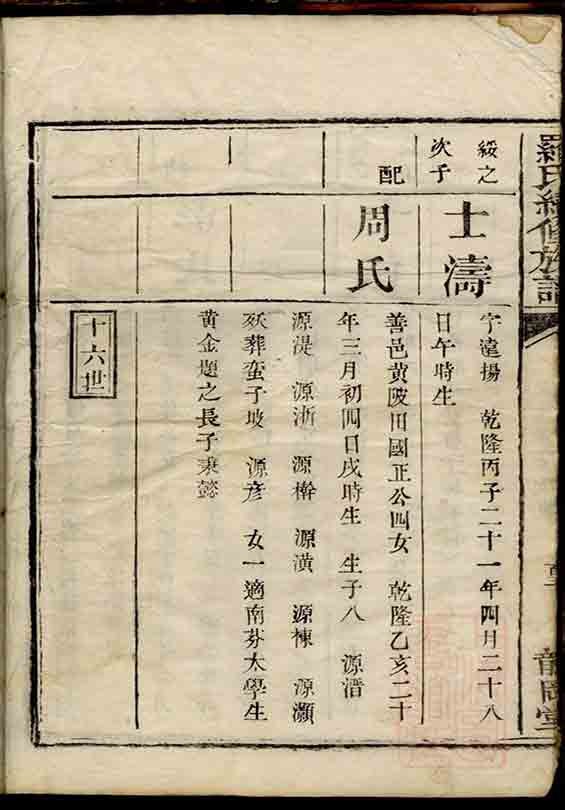 羅氏續修族譜
綏之
次子
士濤
字遠揚 乾隆丙子二十一年四月二十八
日午時生
配
周氏
善邑黄陂田國正公四女 乾隆乙亥二十
年三月初四日戌時生 生子八 源溍
源湜 源浙 源櫸 源潢 源棟 源灝
殀葬蛮子坡 源彦 女一適南芬太學生
黄金題之長子秉懿
十六世